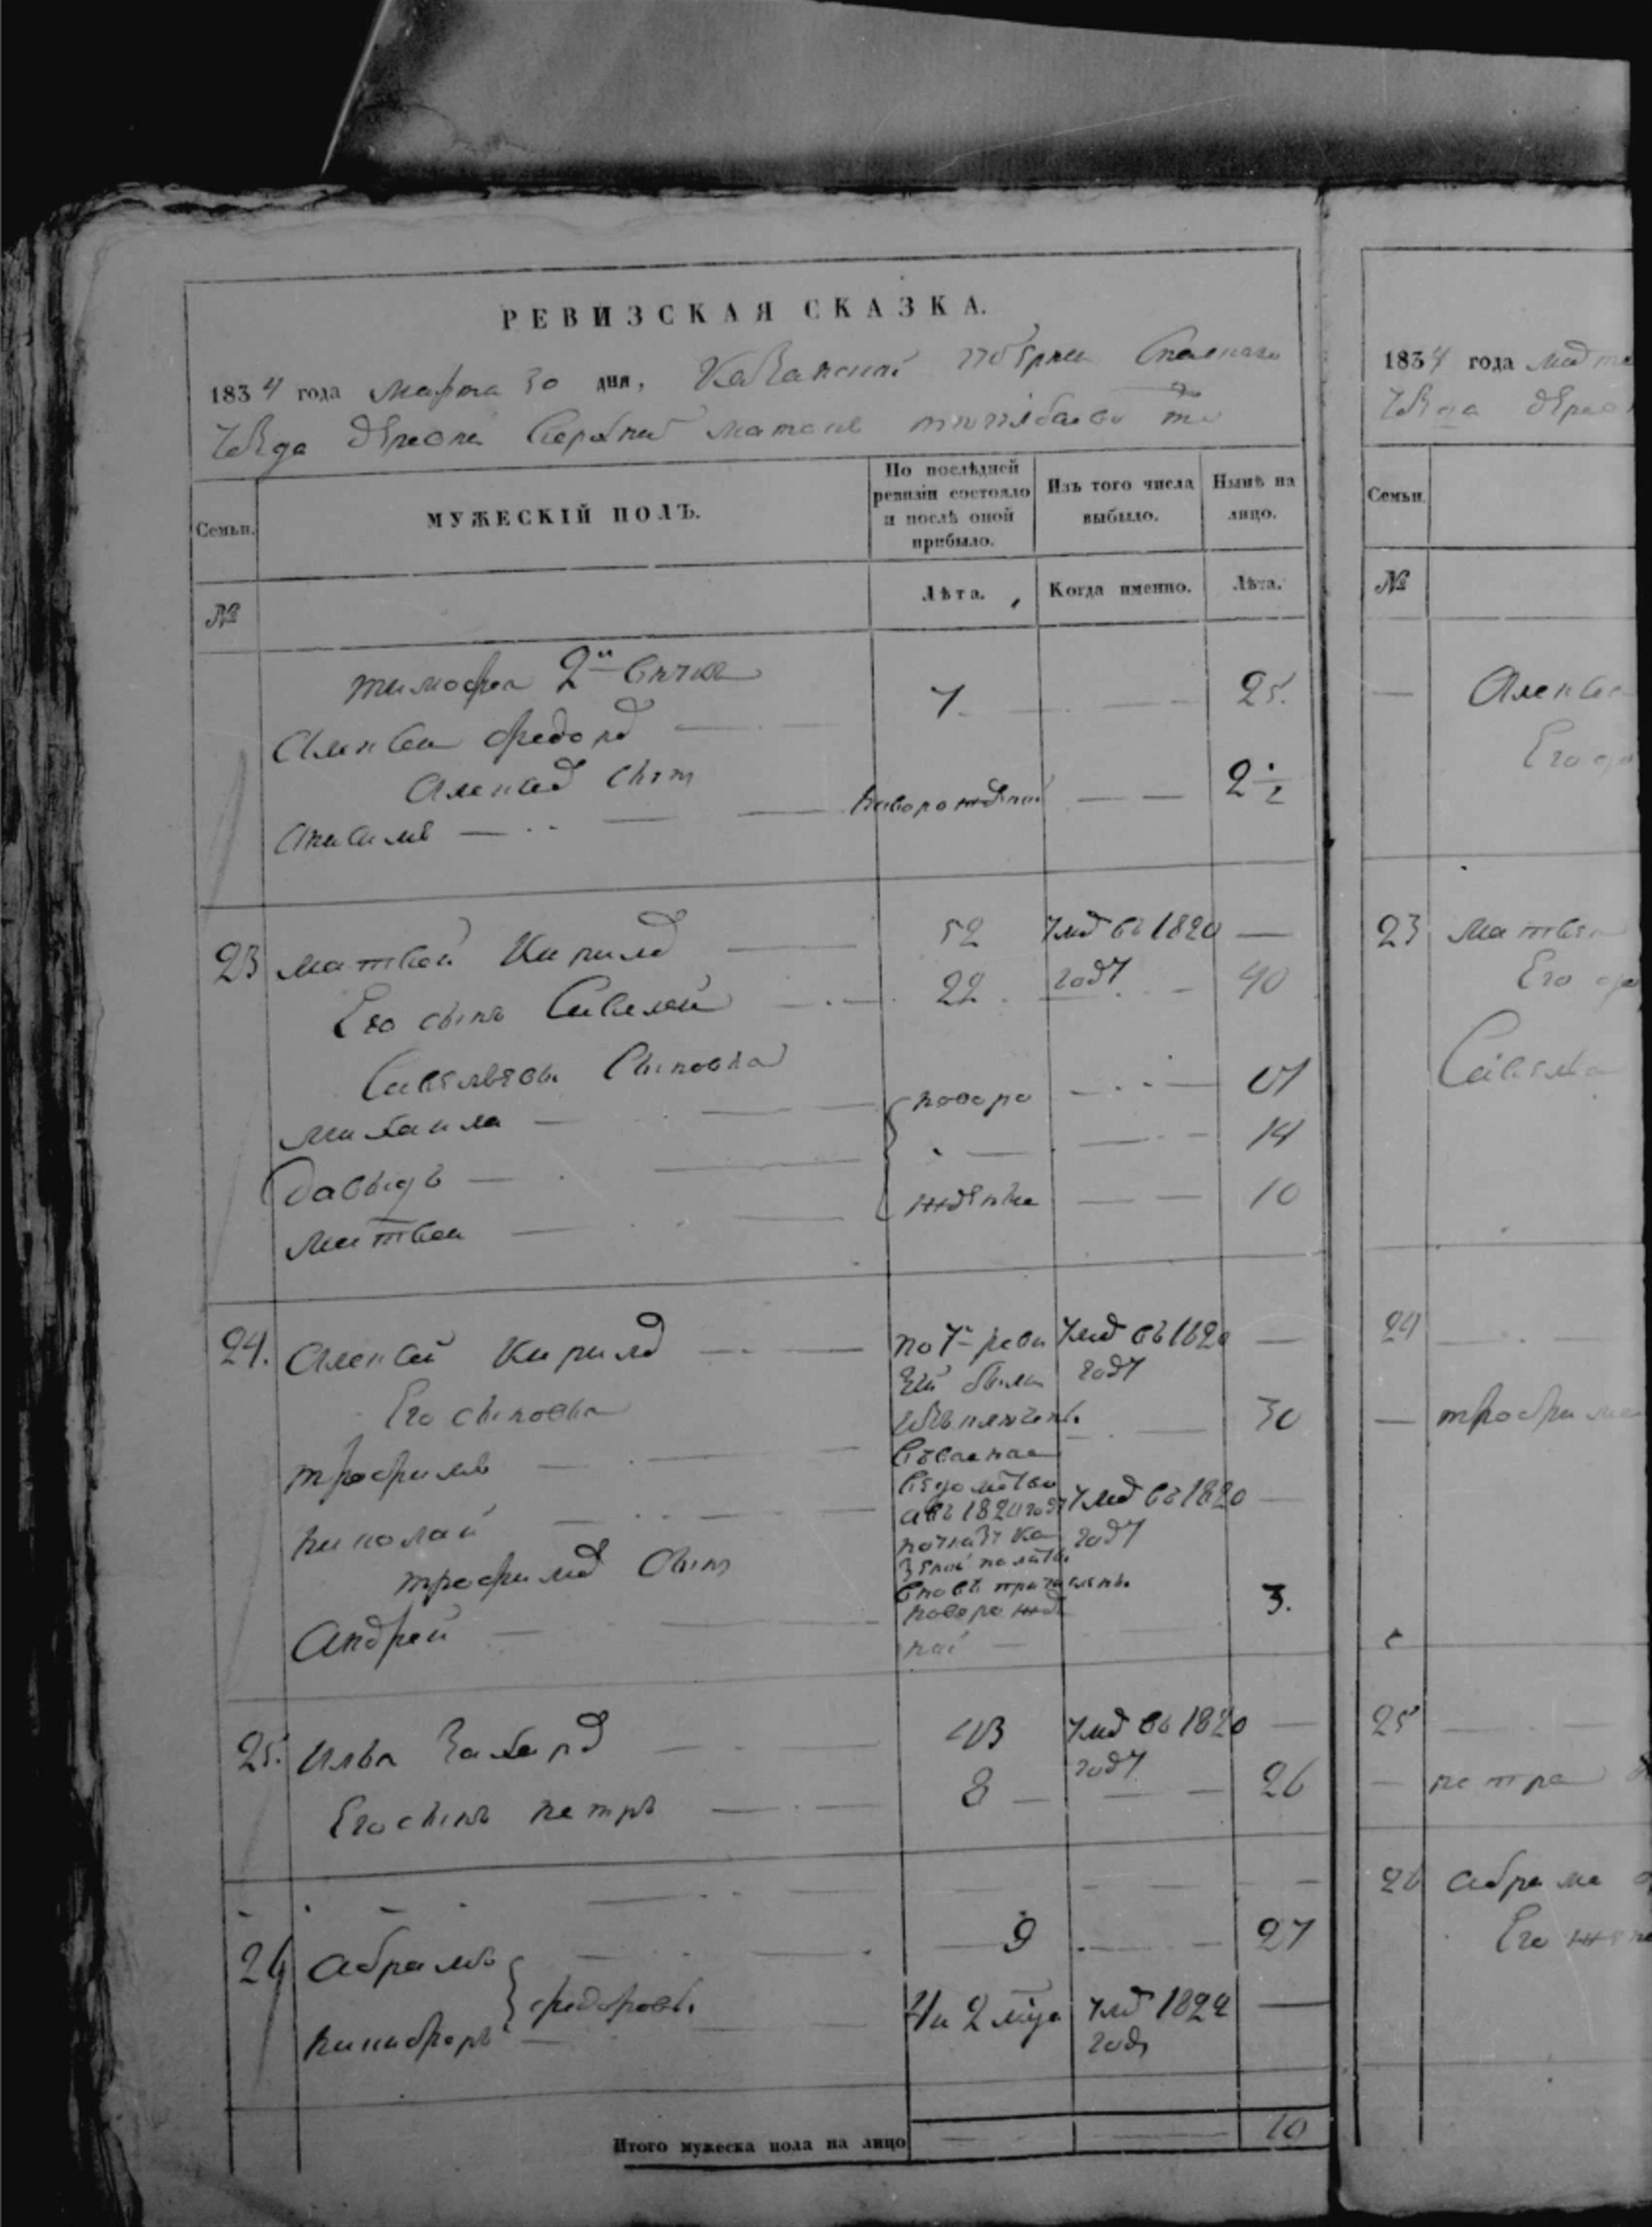 РЕВИЗСКАЯ СКАЗКА.
1834 года марта 30 дня, Казанской губерни Спаскаго
уезда деревни
Семьи.
МУЖЕСКІЙ ПОЛЪ.
По послѣдней ревизіи состояло и послѣ оной прибыло.
Изъ того числа выбыло.
Нынѣ на лицо.
№
Лѣта.
Когда именно.
Лѣта.
тимофея 2й внука
Алексеи федоро 7 25.
Алексеев сын
новорожденой 2 1/2
23 матвей Кирило 52 умр въ 1820
году
Его сынъ Савелей 22 40
Савельевы сыновья
михаила новоро
давыдъ 14
матвеи жденые 10
24. Алексей Кирило по 7й реви умр въ 1820
зии году
Его сыновья
трофимъ 30
николай умр въ 1820
году
трофимо сын
Андрей новорожде 3.
ной
25. Илья Захаро 43 умр въ 1820
году
Его сынъ петръ 8 26
26 абрамъ 9 27
федоровы
никифоръ 4 и 2 м умр 1824
году
Итого мужеска пола на лицо 10
1834 года
Семьи.
№
Алексе
Его
23 матвея
Его
Савелья
24
трофима
25
петра
26 абрама
Его жен